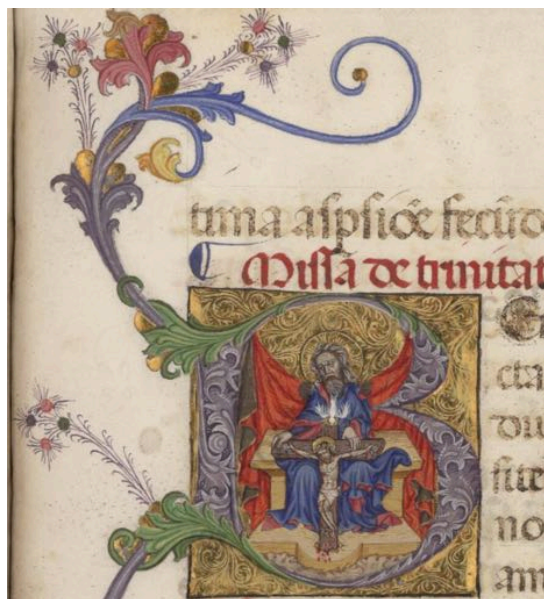 tima aspsiōe
Missa de trinitat
B E
cta
diu
fite
no
am